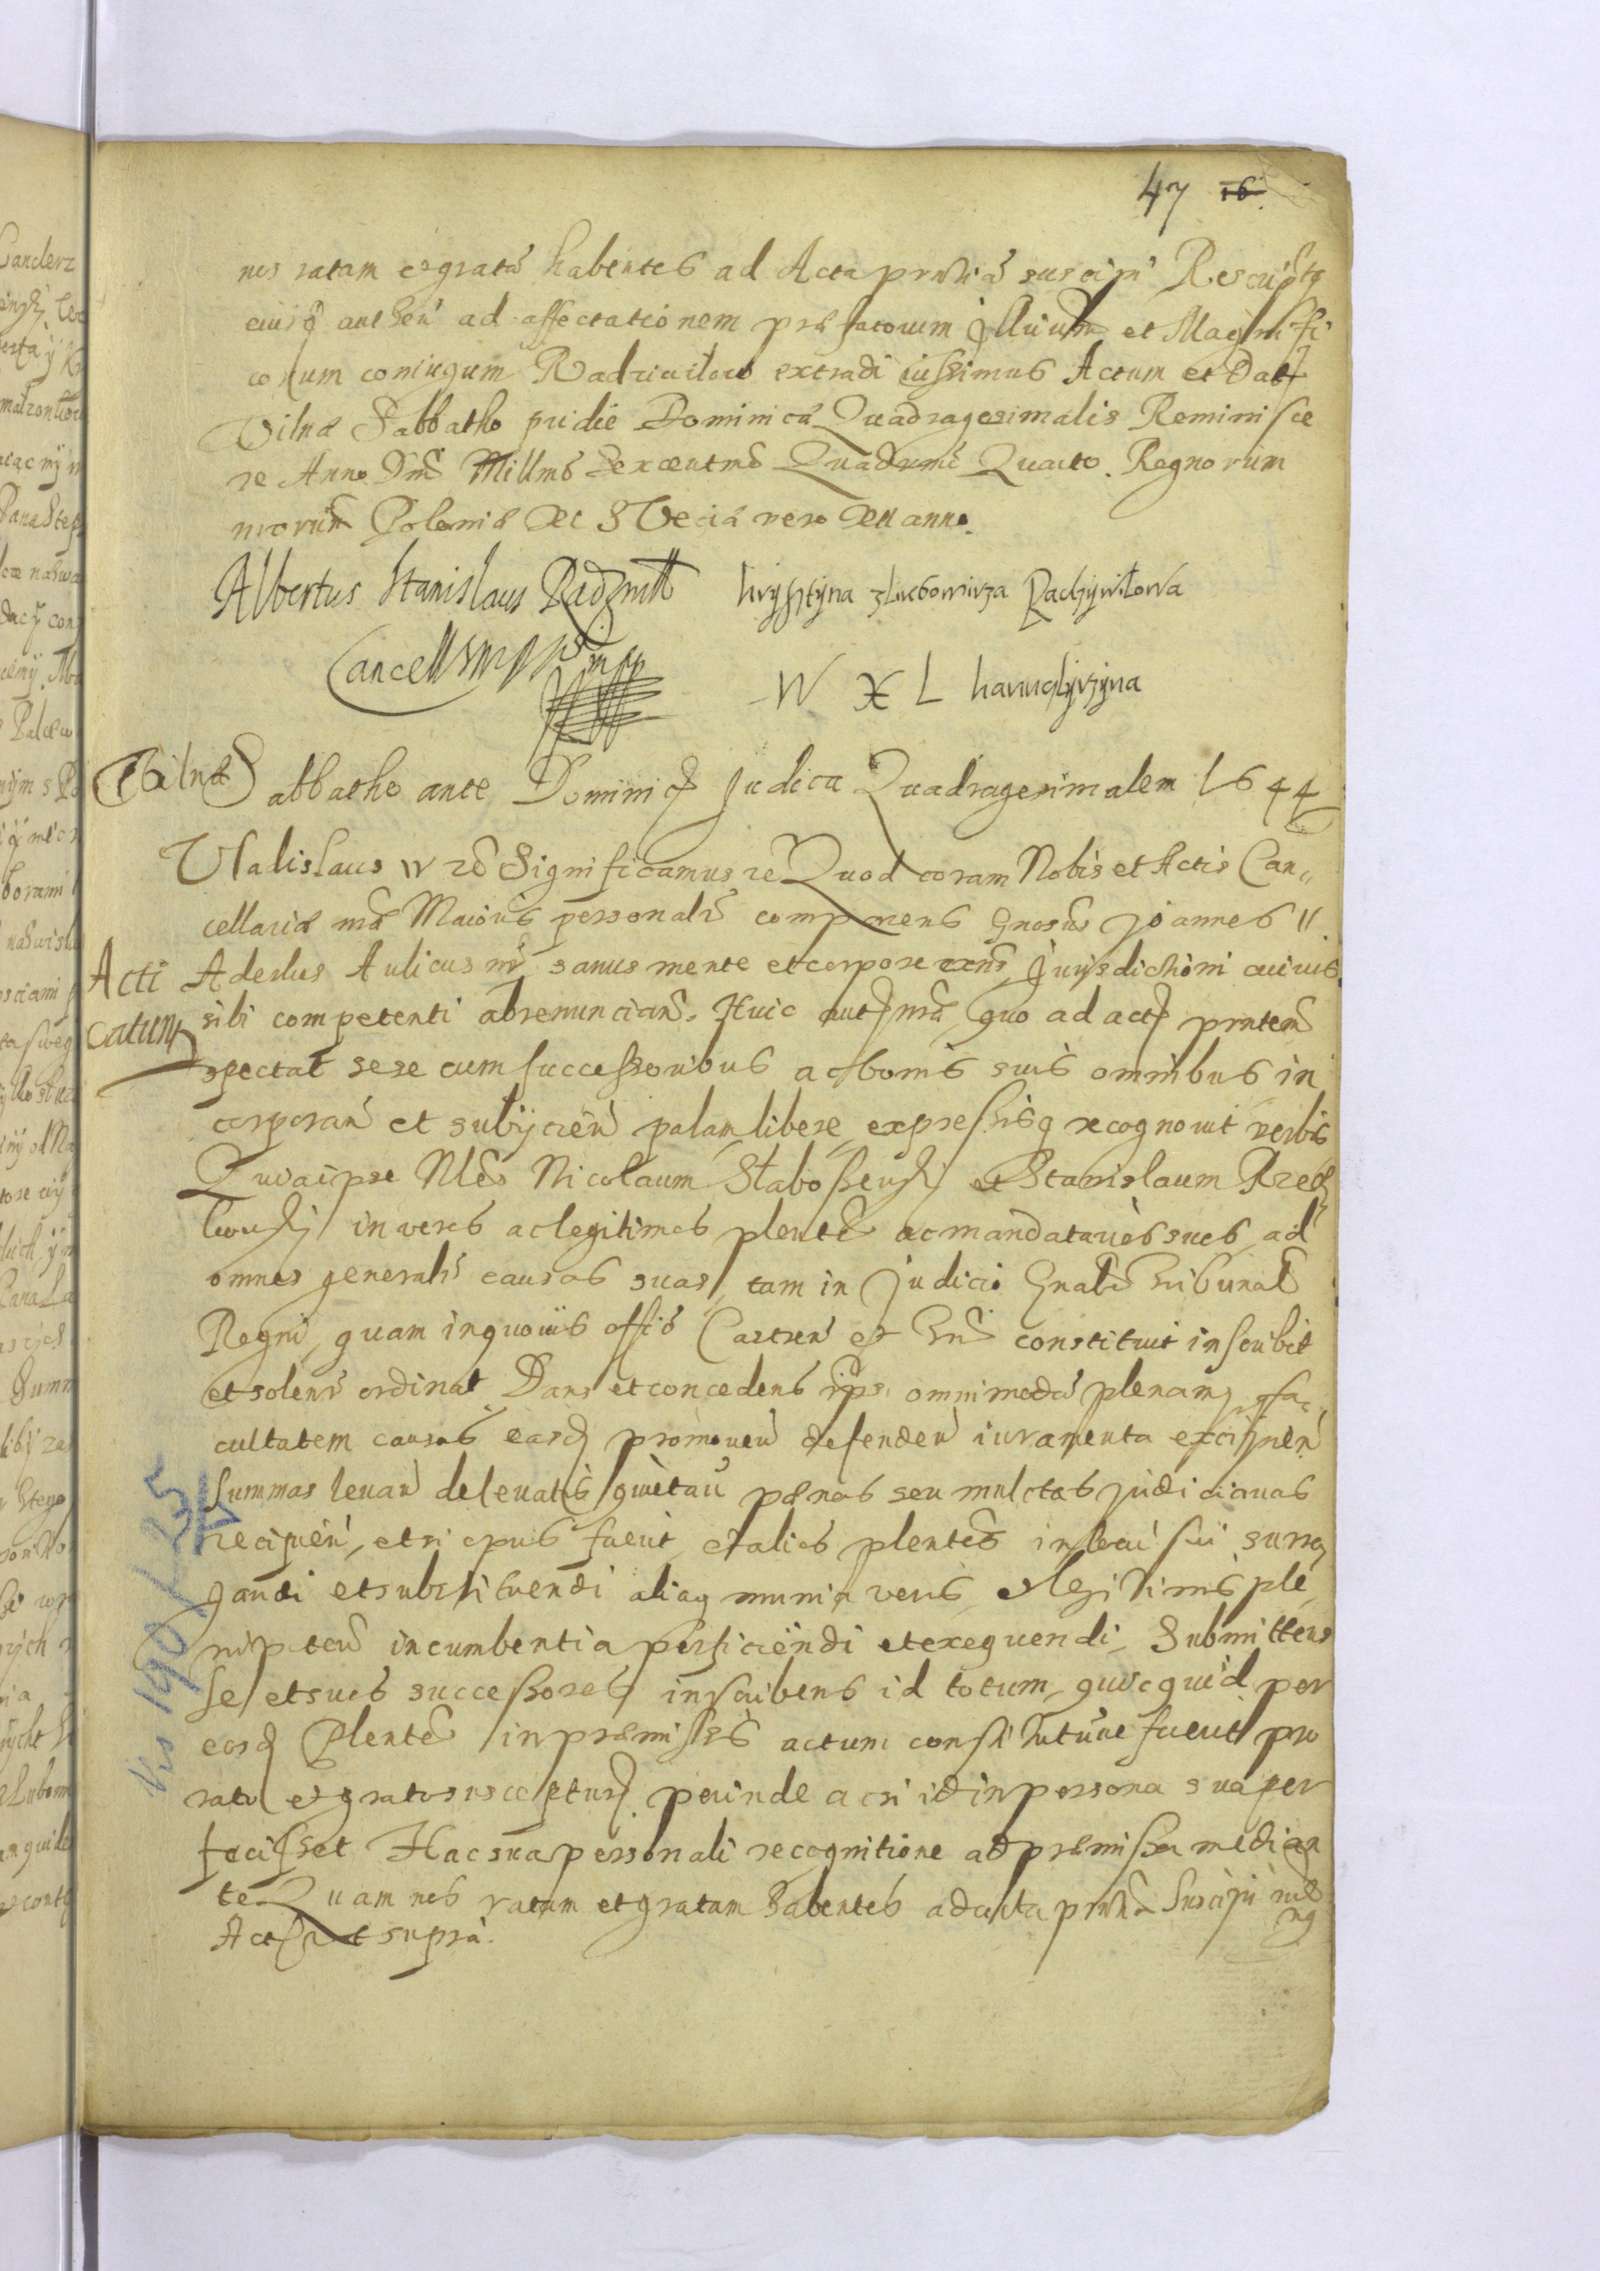 47 16.
nos ratam et gratā habentes ad Acta prnția suscipi Rescriptq
eiusq̃ authen̄ ad affectationem præfatorum Illurum et Magnifi
corum coniugum Radziwiłow extradi iussimus Actum et Dat
Vilnæ Sabbatho pridie Dominicæ Quadragesimalis Reminisce
re Anno Dnī Millmō Sexcentmō Quadrmō Quarto. Regnorum
nrorum Poloniæ XII Sveciæ vero XII anno.
Albertus Stanislaus Radziwill
Krysztyna zlubomirza Radziwiłowa
Cancell mpp
W X L kanclyrzyna
Vilnæ Sabbatho ante Dominicā Judica Quadragesimalem 1644
Vladislaus IV rē Significamus re Quod coram Nobis et Actis Can„
cellariæ nræ Maioris personalr̄ comprnens Gnosus Joannes „
Acti Aderlus Aulicus nr̄ sanus mente et corpore exns̄ Jurisdictioni cuivis
catum sibi competenti abrenuncian̄. Huic autē nræ quo ad actū prntem̄
spectat sese cum successoribus ac bonis suis omnibus in
corporan̄ et subijcien̄ palam libere expressisq recognovit verbis
Quia ipse Nles Nicolaum Słaboszewski et Stanislaum Rzecz
kowski in veros ac legitimos plentes ac mandatarios suos ad
omnes generalr̄ causas suas, tam in Judicio Gnali Tribunal̄
Regni, quam in quovis offiō Castren̄ et Trr̄i constituit inscribit
et solenr̄ ordinat Dans et concedens ipsis omnimodā plenamq fa„
cultatem causas easdē promoven̄ defenden̄ iuramenta excipien̄
summas levan̄ de levatis quietan̄ pænas seu mulctas judiciarias
recipien̄, et si opus fuerit et alios plentes in loci sui surro
gandi et substituendi aliaq munia veris et legitimis ple
nipoten̄ incumbentia perficiendi et exequendi Submittens
se et suos successores inscribens id totum, quicquid per
eosdē Plentes in præmissis actum constitutumve fuerit pro
rato et grato suscepturū. perinde ac si id in persona sua per
fecisset Hac sua personali recognitione ad præmissa median
te Quam nos ratam et gratam habentes ad acta prnția suscipi
Actū ut suprà.